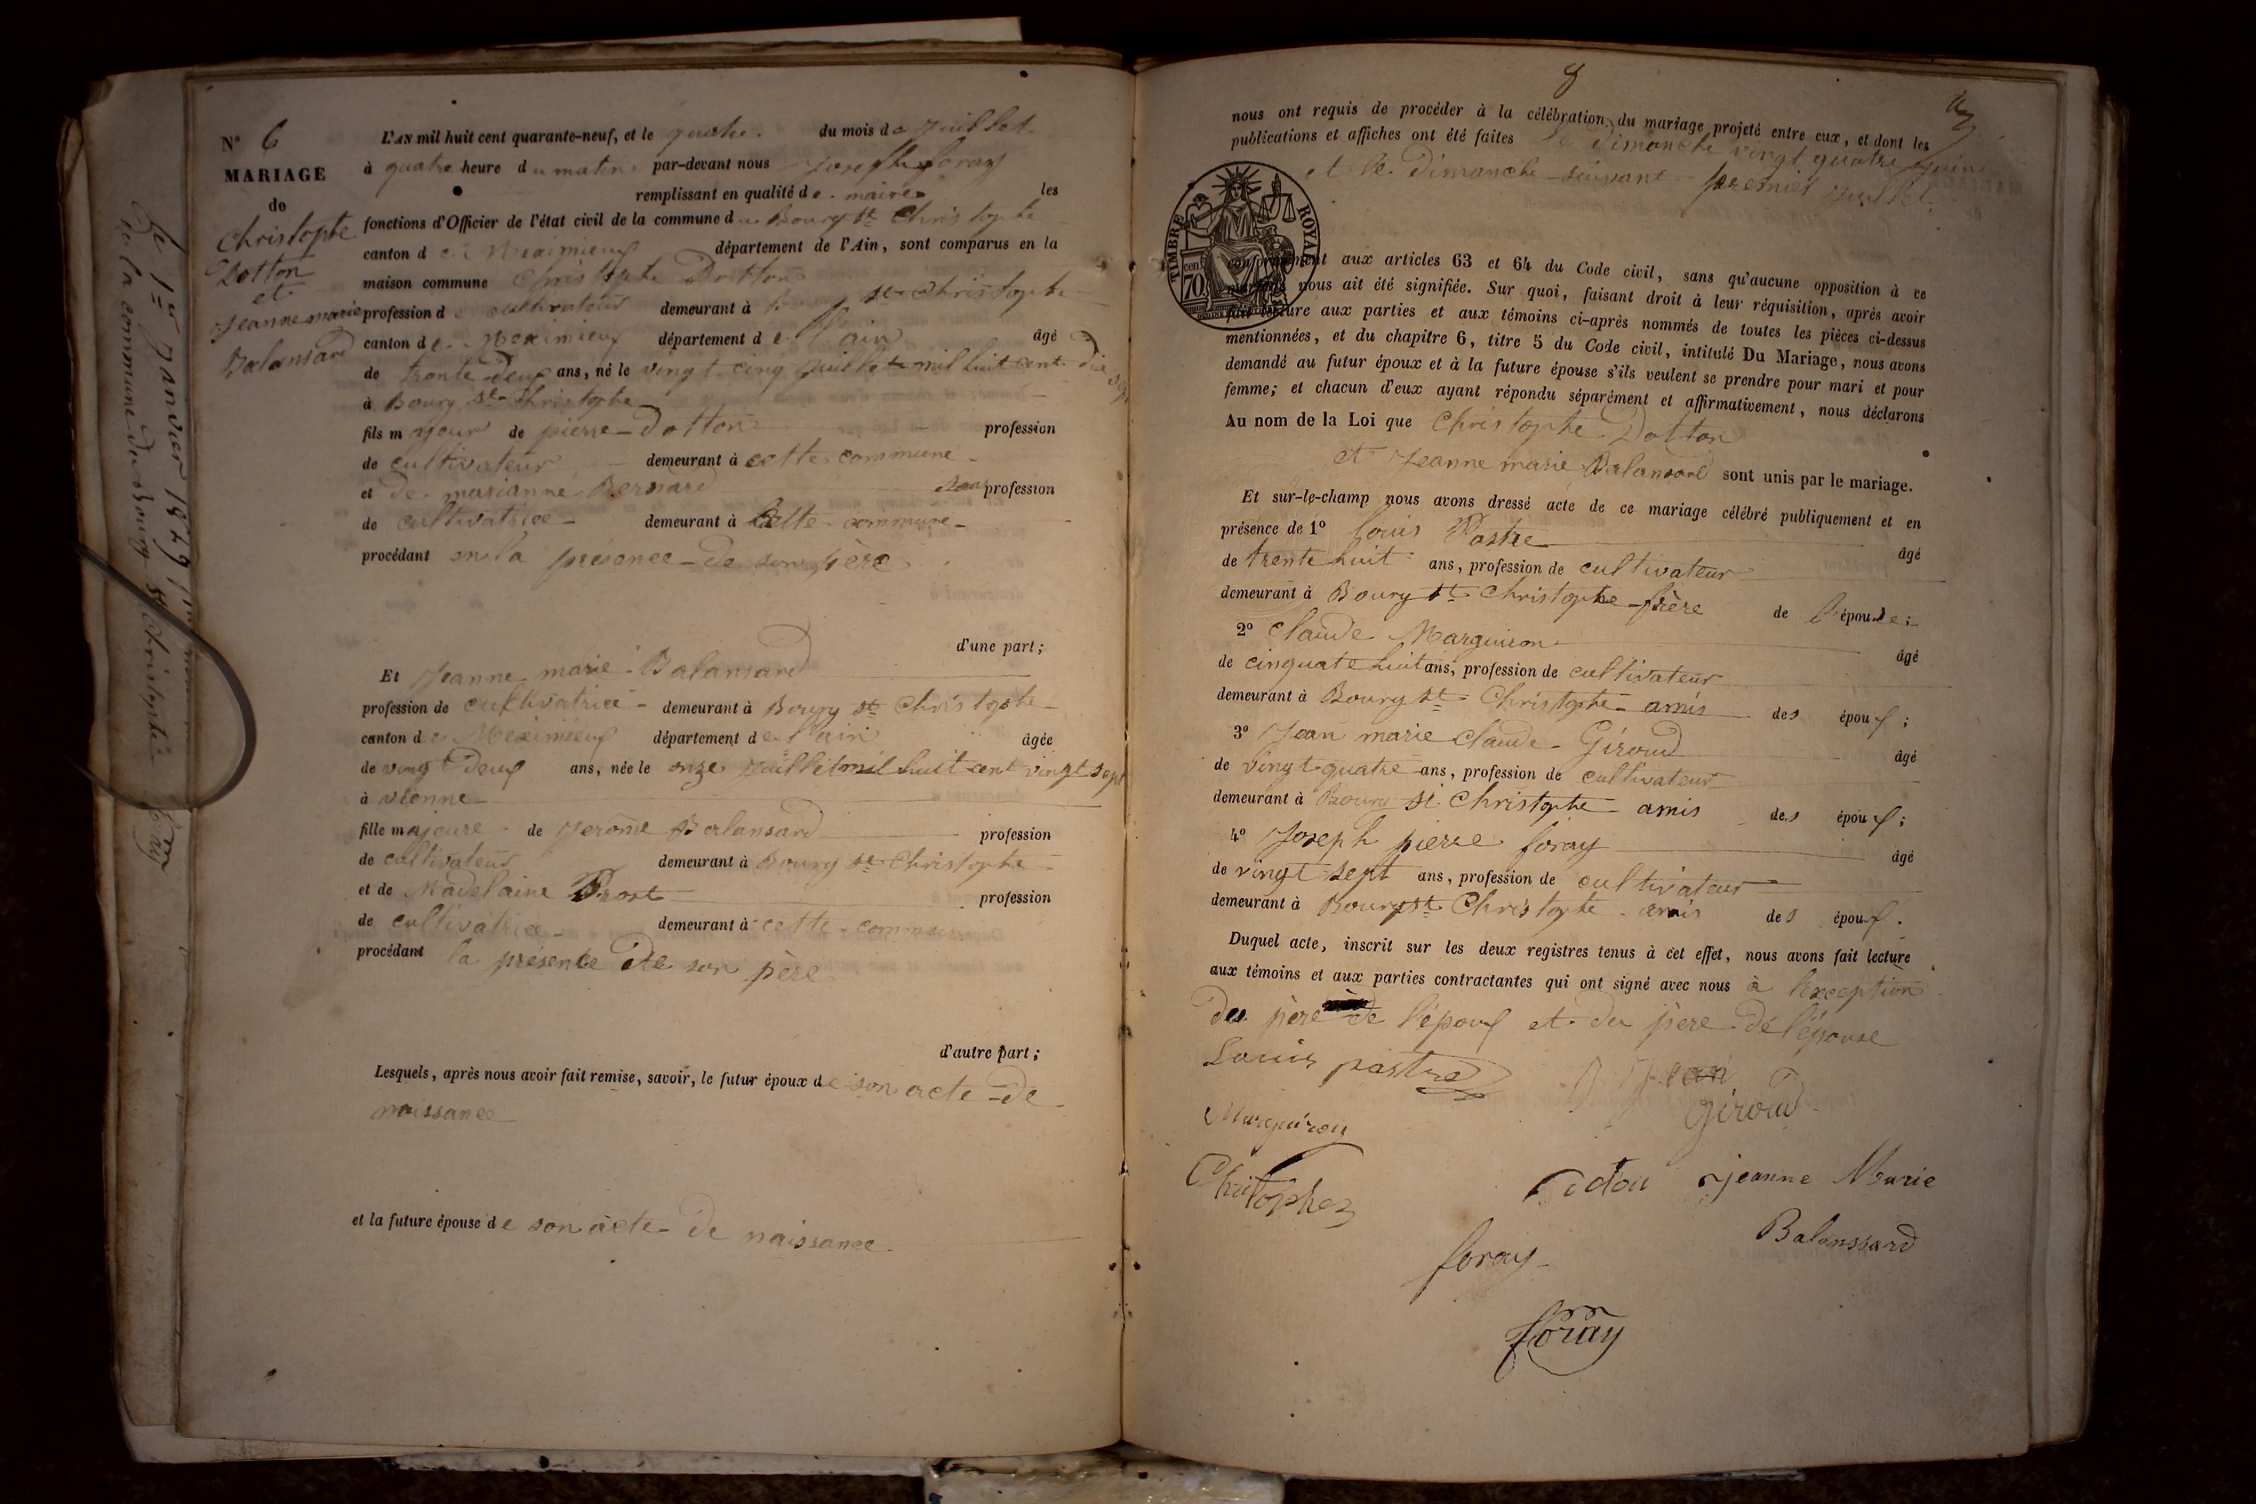 N° 6
MARIAGE
de
Christophe
Dotton
et
Jeanne marie
Balansard
L'AN mil huit cent quarante-neuf, et le quatre du mois de Juillet
à quatre heure du matin par-devant nous Joseph foray
remplissant en qualité de maire les
fonctions d'Officier de l'état civil de la commune du Bourg St Christophe
canton de Meximieux département de l'Ain, sont comparus en la
maison commune Christophe Dotton
profession de cultivateur demeurant à St Christophe
canton de Meximieux département de l'ain âgé
de trente deux ans, né le vingt cinq juillet mil huit cent dix sept
à Bourg St Christophe
fils majeur de pierre Dotton profession
de cultivateur demeurant à cette commune
et de marianne Bernard sans profession
de cultivatrice demeurant à cette commune
procédant en la présence de son père
d'une part;
Et Jeanne marie Balansard
profession de cultivatrice demeurant à Bourg St Christophe
canton de Meximieux département de l'ain âgée
de vingt deux ans, née le onze juillet mil huit cent vingt sept
à vienne
fille majeure de Jerôme Balansard profession
de cultivateur demeurant à Bourg St Christophe
et de Madelaine Prost profession
de cultivatrice demeurant à cette commune
procédant la présence de son père
d'autre part;
Lesquels, après nous avoir fait remise, savoir, le futur époux de son acte de
naissance
et la future épouse de son acte de naissance
8
nous ont requis de procéder à la célébration du mariage projeté entre eux, et dont les
publications et affiches ont été faites le Dimanche vingt quatre juin
et le Dimanche suivant premier juillet
TIMBRE ROYAL
cen. 70
conformément aux articles 63 et 64 du Code civil, sans qu'aucune opposition à ce
mariage nous ait été signifiée. Sur quoi, faisant droit à leur réquisition, après avoir
fait lecture aux parties et aux témoins ci-après nommés de toutes les pièces ci-dessus
mentionnées, et du chapitre 6, titre 5 du Code civil, intitulé Du Mariage, nous avons
demandé au futur époux et à la future épouse s'ils veulent se prendre pour mari et pour
femme; et chacun d'eux ayant répondu séparément et affirmativement, nous déclarons
Au nom de la Loi que Christophe Dotton
et Jeanne marie Balansard sont unis par le mariage.
Et sur-le-champ nous avons dressé acte de ce mariage célébré publiquement et en
présence de 1° Louis Pastre âgé
de trente huit ans, profession de cultivateur
demeurant à Bourg St Christophe frère de l'épouse;
2° Claude Marguiron âgé
de cinquate huit ans, profession de cultivateur
demeurant à Bourg St Christophe amis des époux;
3° Jean marie Claude Giroud âgé
de vingt quatre ans, profession de cultivateur
demeurant à Bourg St Christophe amis des époux;
4° Joseph pierre foray âgé
de vingt sept ans, profession de cultivateur
demeurant à Bourg St Christophe amis des époux.
Duquel acte, inscrit sur les deux registres tenus à cet effet, nous avons fait lecture
aux témoins et aux parties contractantes qui ont signé avec nous à l'exception
des père de l'époux et du père de l'épouse
Louis pastre
Jean
Giroud
Marguiron
Jeanne Marie
Balanssard
foray
foray